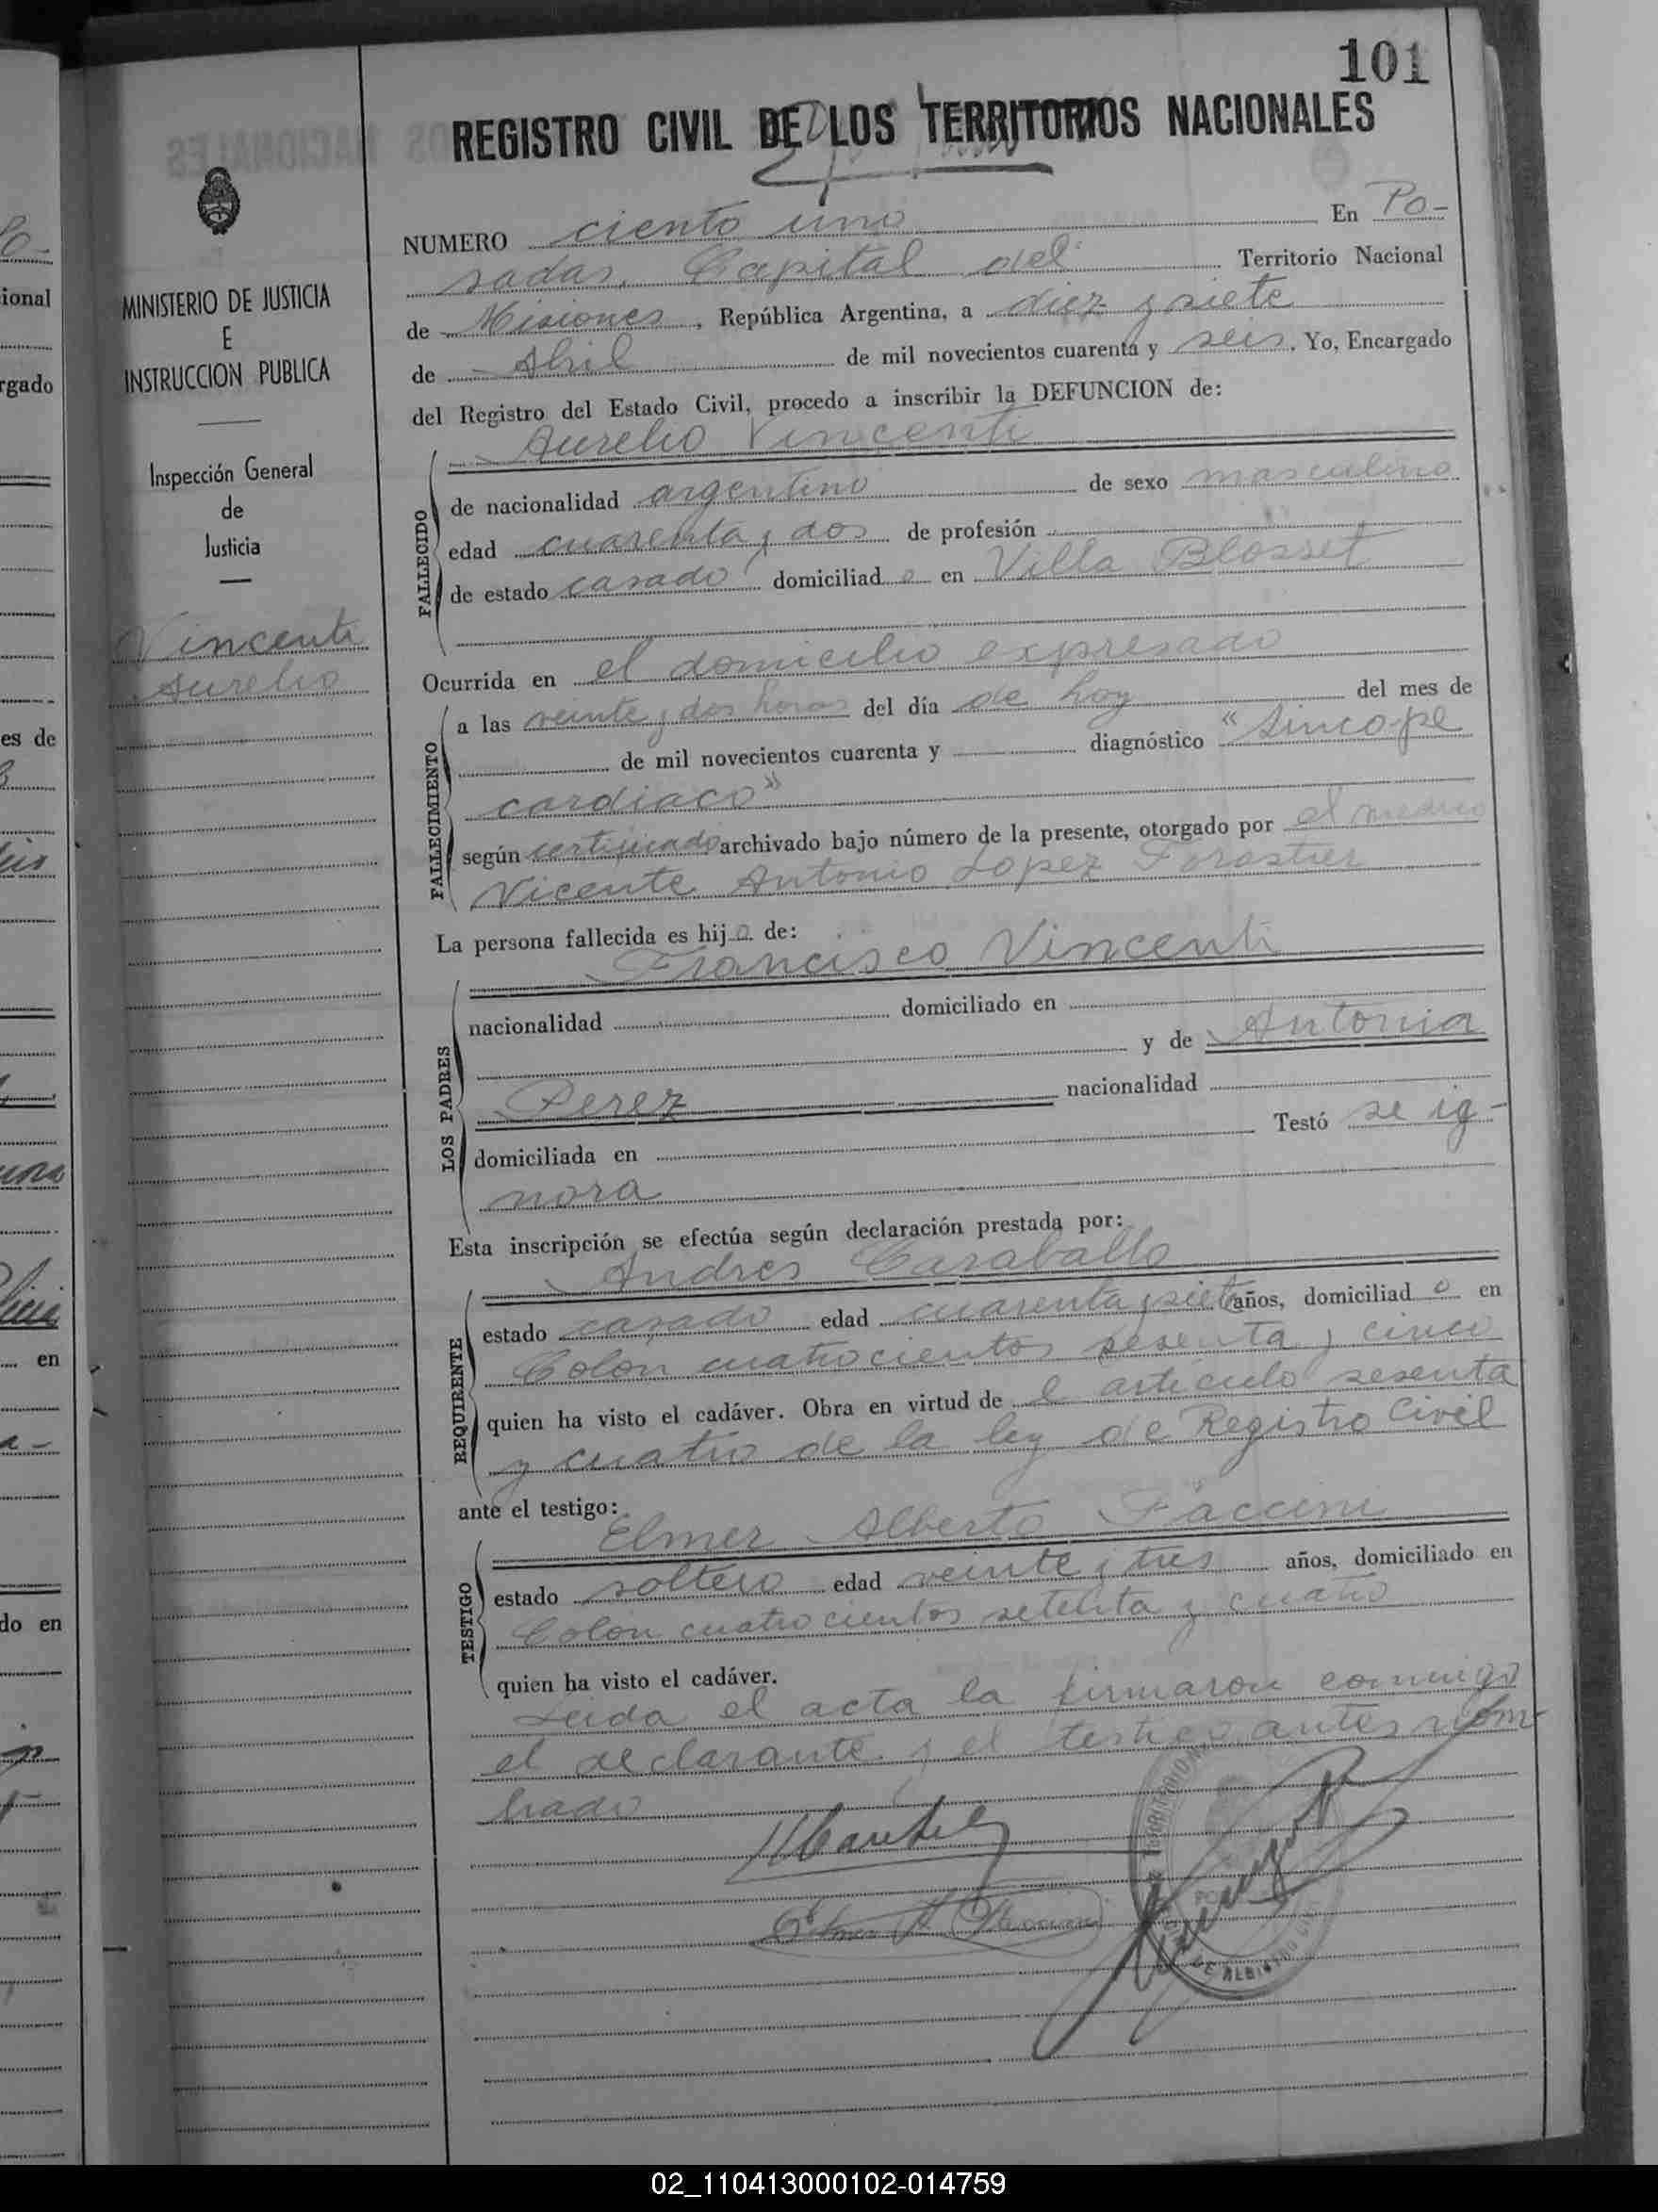 101
REGISTRO CIVIL DE LOS TERRITORIOS NACIONALES
NUMERO ciento uno En Po-
sadas, Capital del Territorio Nacional
de Misiones, República Argentina, a diez y siete
de Abril de mil novecientos cuarenta y seis. Yo, Encargado
del Registro del Estado Civil, procedo a inscribir la DEFUNCION de:
Aurelio Vincenti
FALLECIDO
de nacionalidad argentino de sexo masculino
edad cuarenta y dos de profesión
de estado casado domiciliado en Villa Blosset
Ocurrida en el domicilio expresado
FALLECIMIENTO
a las veinte y dos horas del día de hoy del mes de
de mil novecientos cuarenta y diagnóstico "Sincope
cardiaco"
según certificado archivado bajo número de la presente, otorgado por el medico
Vicente Antonio Lopez Forastier
La persona fallecida es hijo de:
Francisco Vincenti
LOS PADRES
nacionalidad domiciliado en
y de Antonia
Perez nacionalidad
domiciliada en Testó se ig-
nora
Esta inscripción se efectúa según declaración prestada por:
Andres Caraballo
REQUIRENTE
estado casado edad cuarenta y siete años, domiciliado en
Colón cuatrocientos sesenta y cinco
quien ha visto el cadáver. Obra en virtud de l articulo sesenta
y cuatro de la ley de Registro Civil
ante el testigo:
Elmer Alberto Faccini
TESTIGO
estado soltero edad veinte y tres años, domiciliado en
Colón cuatrocientos setenta y cuatro
quien ha visto el cadáver.
Leida el acta la firmaron conmigo
el declarante y el testigo antes nom-
brado
MINISTERIO DE JUSTICIA
E
INSTRUCCION PUBLICA
Inspección General
de
Justicia
Vincenti
Aurelio
02_110413000102-014759